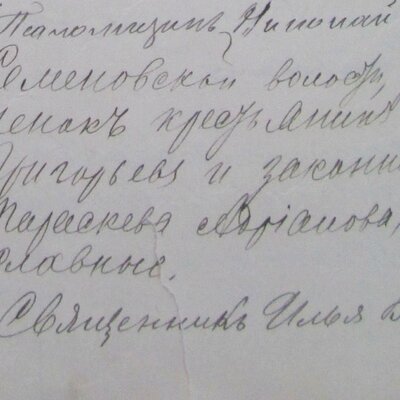 Псаломщикъ Николай
Семеновской волости,
ченокъ крестьянинъ
Григорьевъ и законн
Параскева Адріанова,
славные.
Священникъ Илья